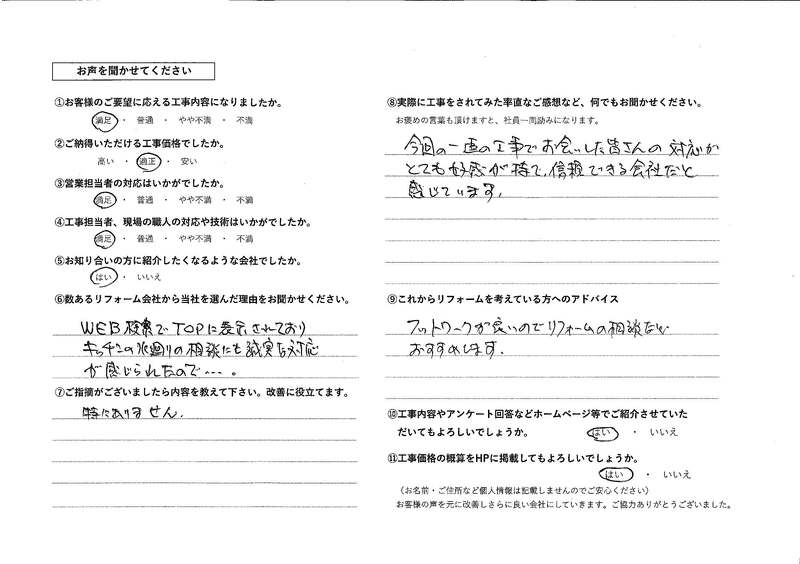 お声を聞かせてください
①お客様のご要望に応える工事内容になりましたか。
満足 ・ 普通 ・ やや不満 ・ 不満
②ご納得いただける工事価格でしたか。
高い ・ 適正 ・ 安い
③営業担当者の対応はいかがでしたか。
満足 ・ 普通 ・ やや不満 ・ 不満
④工事担当者、現場の職人の対応や技術はいかがでしたか。
満足 ・ 普通 ・ やや不満 ・ 不満
⑤お知り合いの方に紹介したくなるような会社でしたか。
はい ・ いいえ
⑥数あるリフォーム会社から当社を選んだ理由をお聞かせください。
WEB検索でTOPに表示されており
キッチンの水廻りの相談にも誠実な対応
が感じられたので・・・。
⑦ご指摘がございましたら内容を教えて下さい。改善に役立てます。
特にありません。
⑧実際に工事をされてみた率直なご感想など、何でもお聞かせください。
お褒めの言葉も頂けますと、社員一同励みになります。
今回の一連の工事でお会いした皆さんの対応が
とても好感が持て、信頼できる会社だと
感じています。
⑨これからリフォームを考えている方へのアドバイス
フットワークが良いのでリフォームの相談なら
おすすめします。
⑩工事内容やアンケート回答などホームページ等でご紹介させていた
だいてもよろしいでしょうか。 はい ・ いいえ
⑪工事価格の概算をHPに掲載してもよろしいでしょうか。
はい ・ いいえ
（お名前・ご住所など個人情報は記載しませんのでご安心ください）
お客様の声を元に改善しさらに良い会社にしていきます。ご協力ありがとうございました。